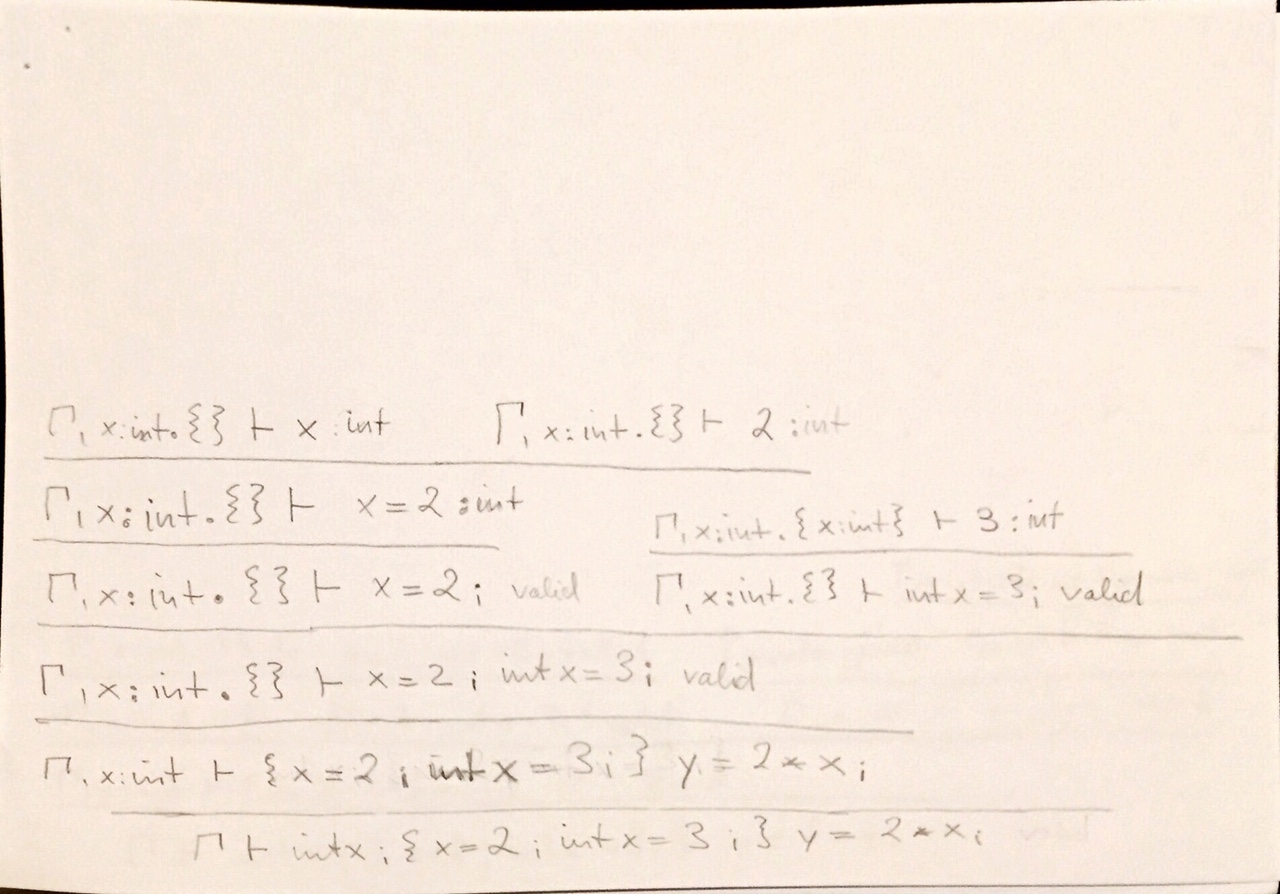 Γ, x:int.{} ⊢ x : int    Γ, x:int.{} ⊢ 2 : int
Γ, x:int.{} ⊢ x = 2 : int
Γ, x:int.{x:int} ⊢ 3 : int
Γ, x:int.{} ⊢ x = 2; valid    Γ, x:int.{} ⊢ int x = 3; valid
Γ, x:int.{} ⊢ x = 2; int x = 3; valid
Γ, x:int ⊢ {x = 2; int x = 3;} y = 2 * x;
Γ ⊢ int x; {x = 2; int x = 3;} y = 2 * x;